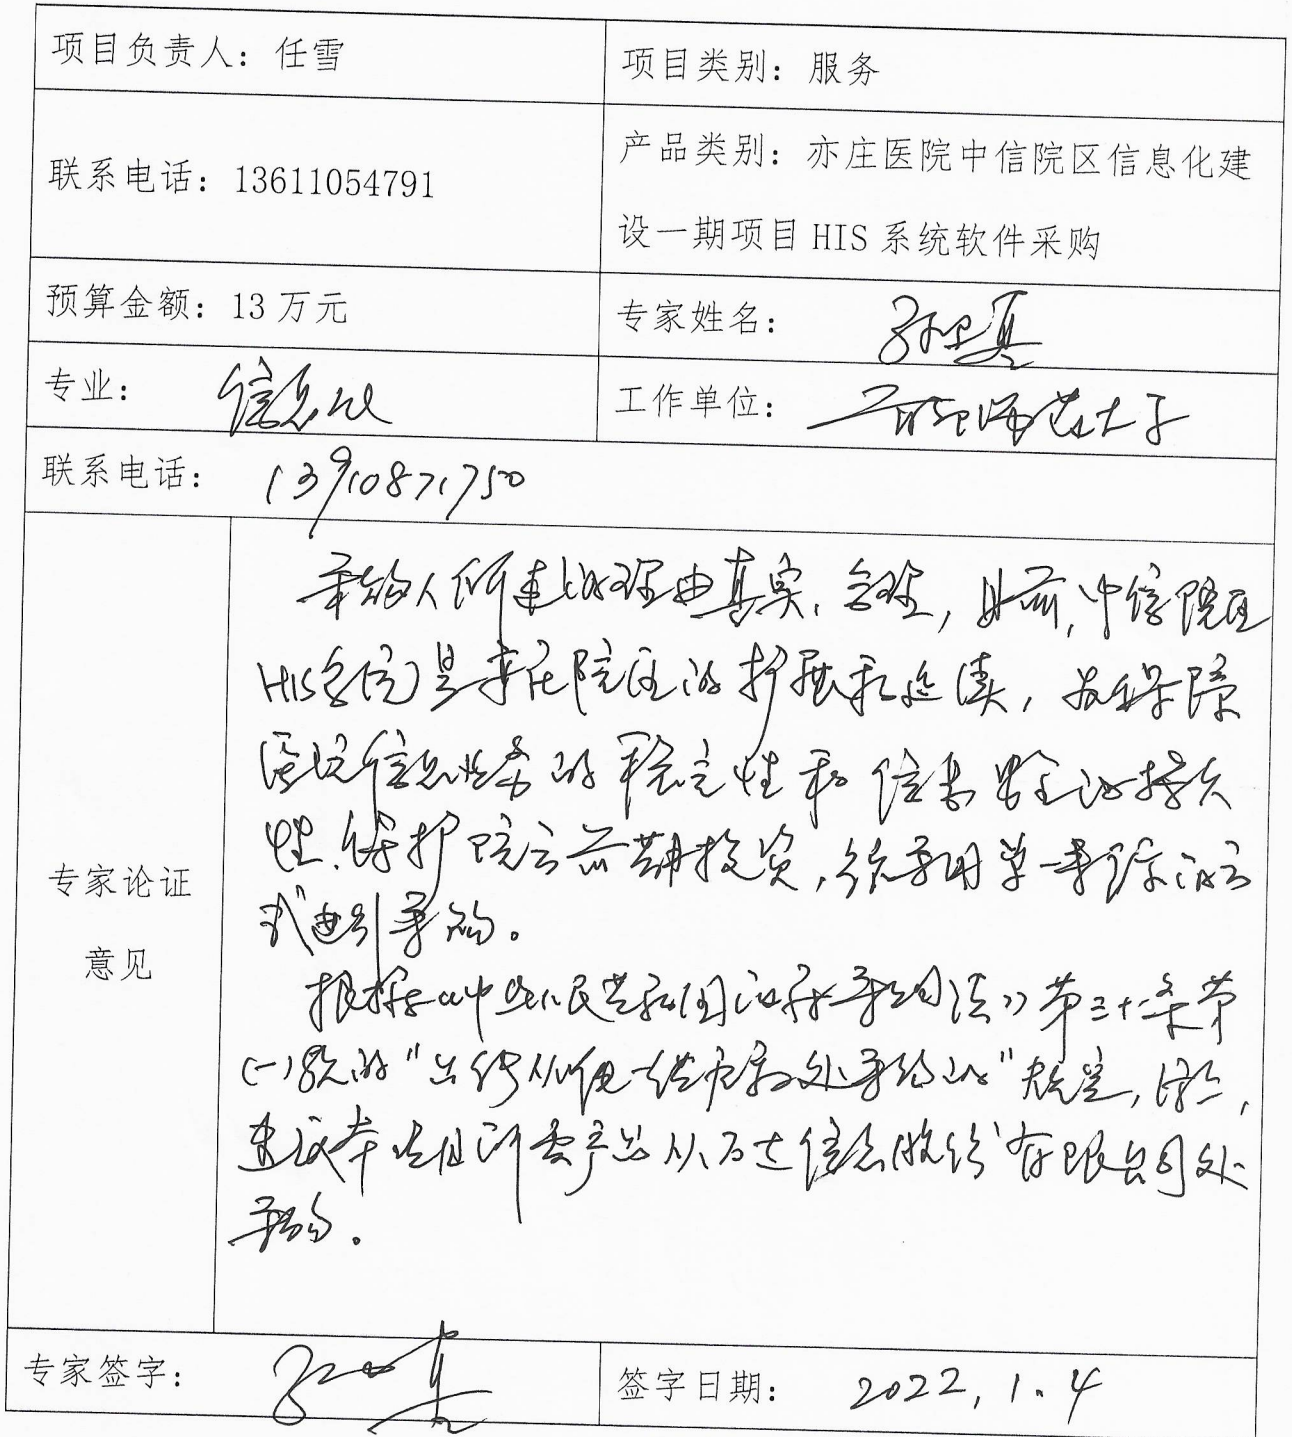 项目负责人：任雪
项目类别：服务
联系电话：13611054791
产品类别：亦庄医院中信院区信息化建
设一期项目 HIS 系统软件采购
预算金额：13 万元
专家姓名：
专业：信息化
工作单位：首都师范大学
联系电话：13910871750
专家论证
意见
采购人所述的理由真实、合理，目前，中信院区
HIS是亦庄院区的扩展和延续，为保障
医院信息业务的稳定性和信息安全的持久
性、保护院方前期投资，须采用单一来源的方
式进行采购。
根据《中华人民共和国政府采购法》第三十一条第
(一)款的"只能从唯一供应商处采购的"规定，因此，
建议本项目所需产品从万达信息股份有限公司处
采购。
专家签字：
签字日期：2022.1.4